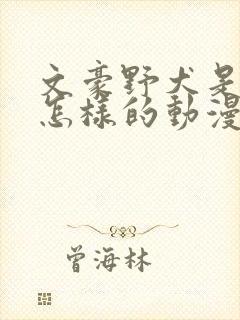 文豪野犬是
怎樣的動漫
曾海林